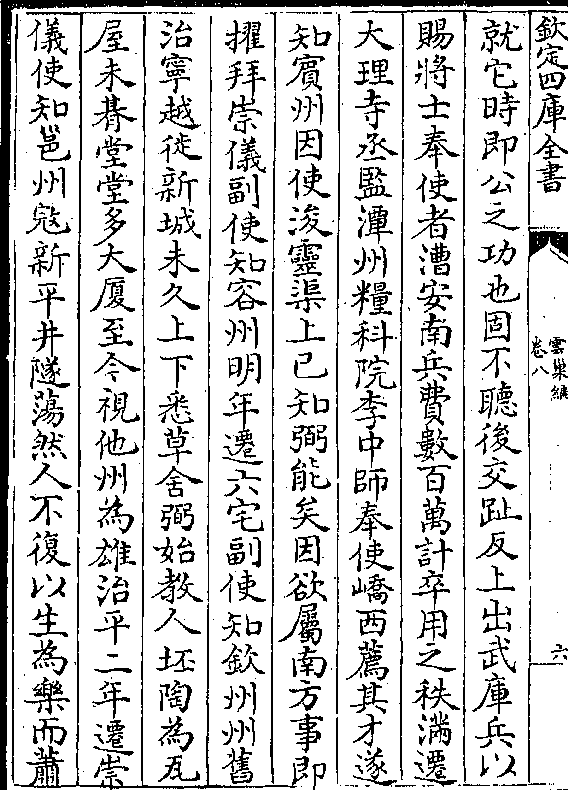 欽定四庫全書
雲巢編
卷八
六
就它時即公之功也固不聽後交趾反上出武庫兵以
賜將士奉使者漕安南兵費數百萬計卒用之秩滿遷
大理寺丞監潭州糧科院李中師奉使嶠西薦其才遂
知賓州因使浚靈渠上已知弼能矣因欲屬南方事即
擢拜崇儀副使知容州明年遷六宅副使知欽州州舊
治寧越徙新城未久上下悉草舍弼始教人坯陶為瓦
屋未朞堂堂多大厦至今視他州為雄治平二年遷崇
儀使知邕州冦新平井隧蕩然人不復以生為樂而蕭